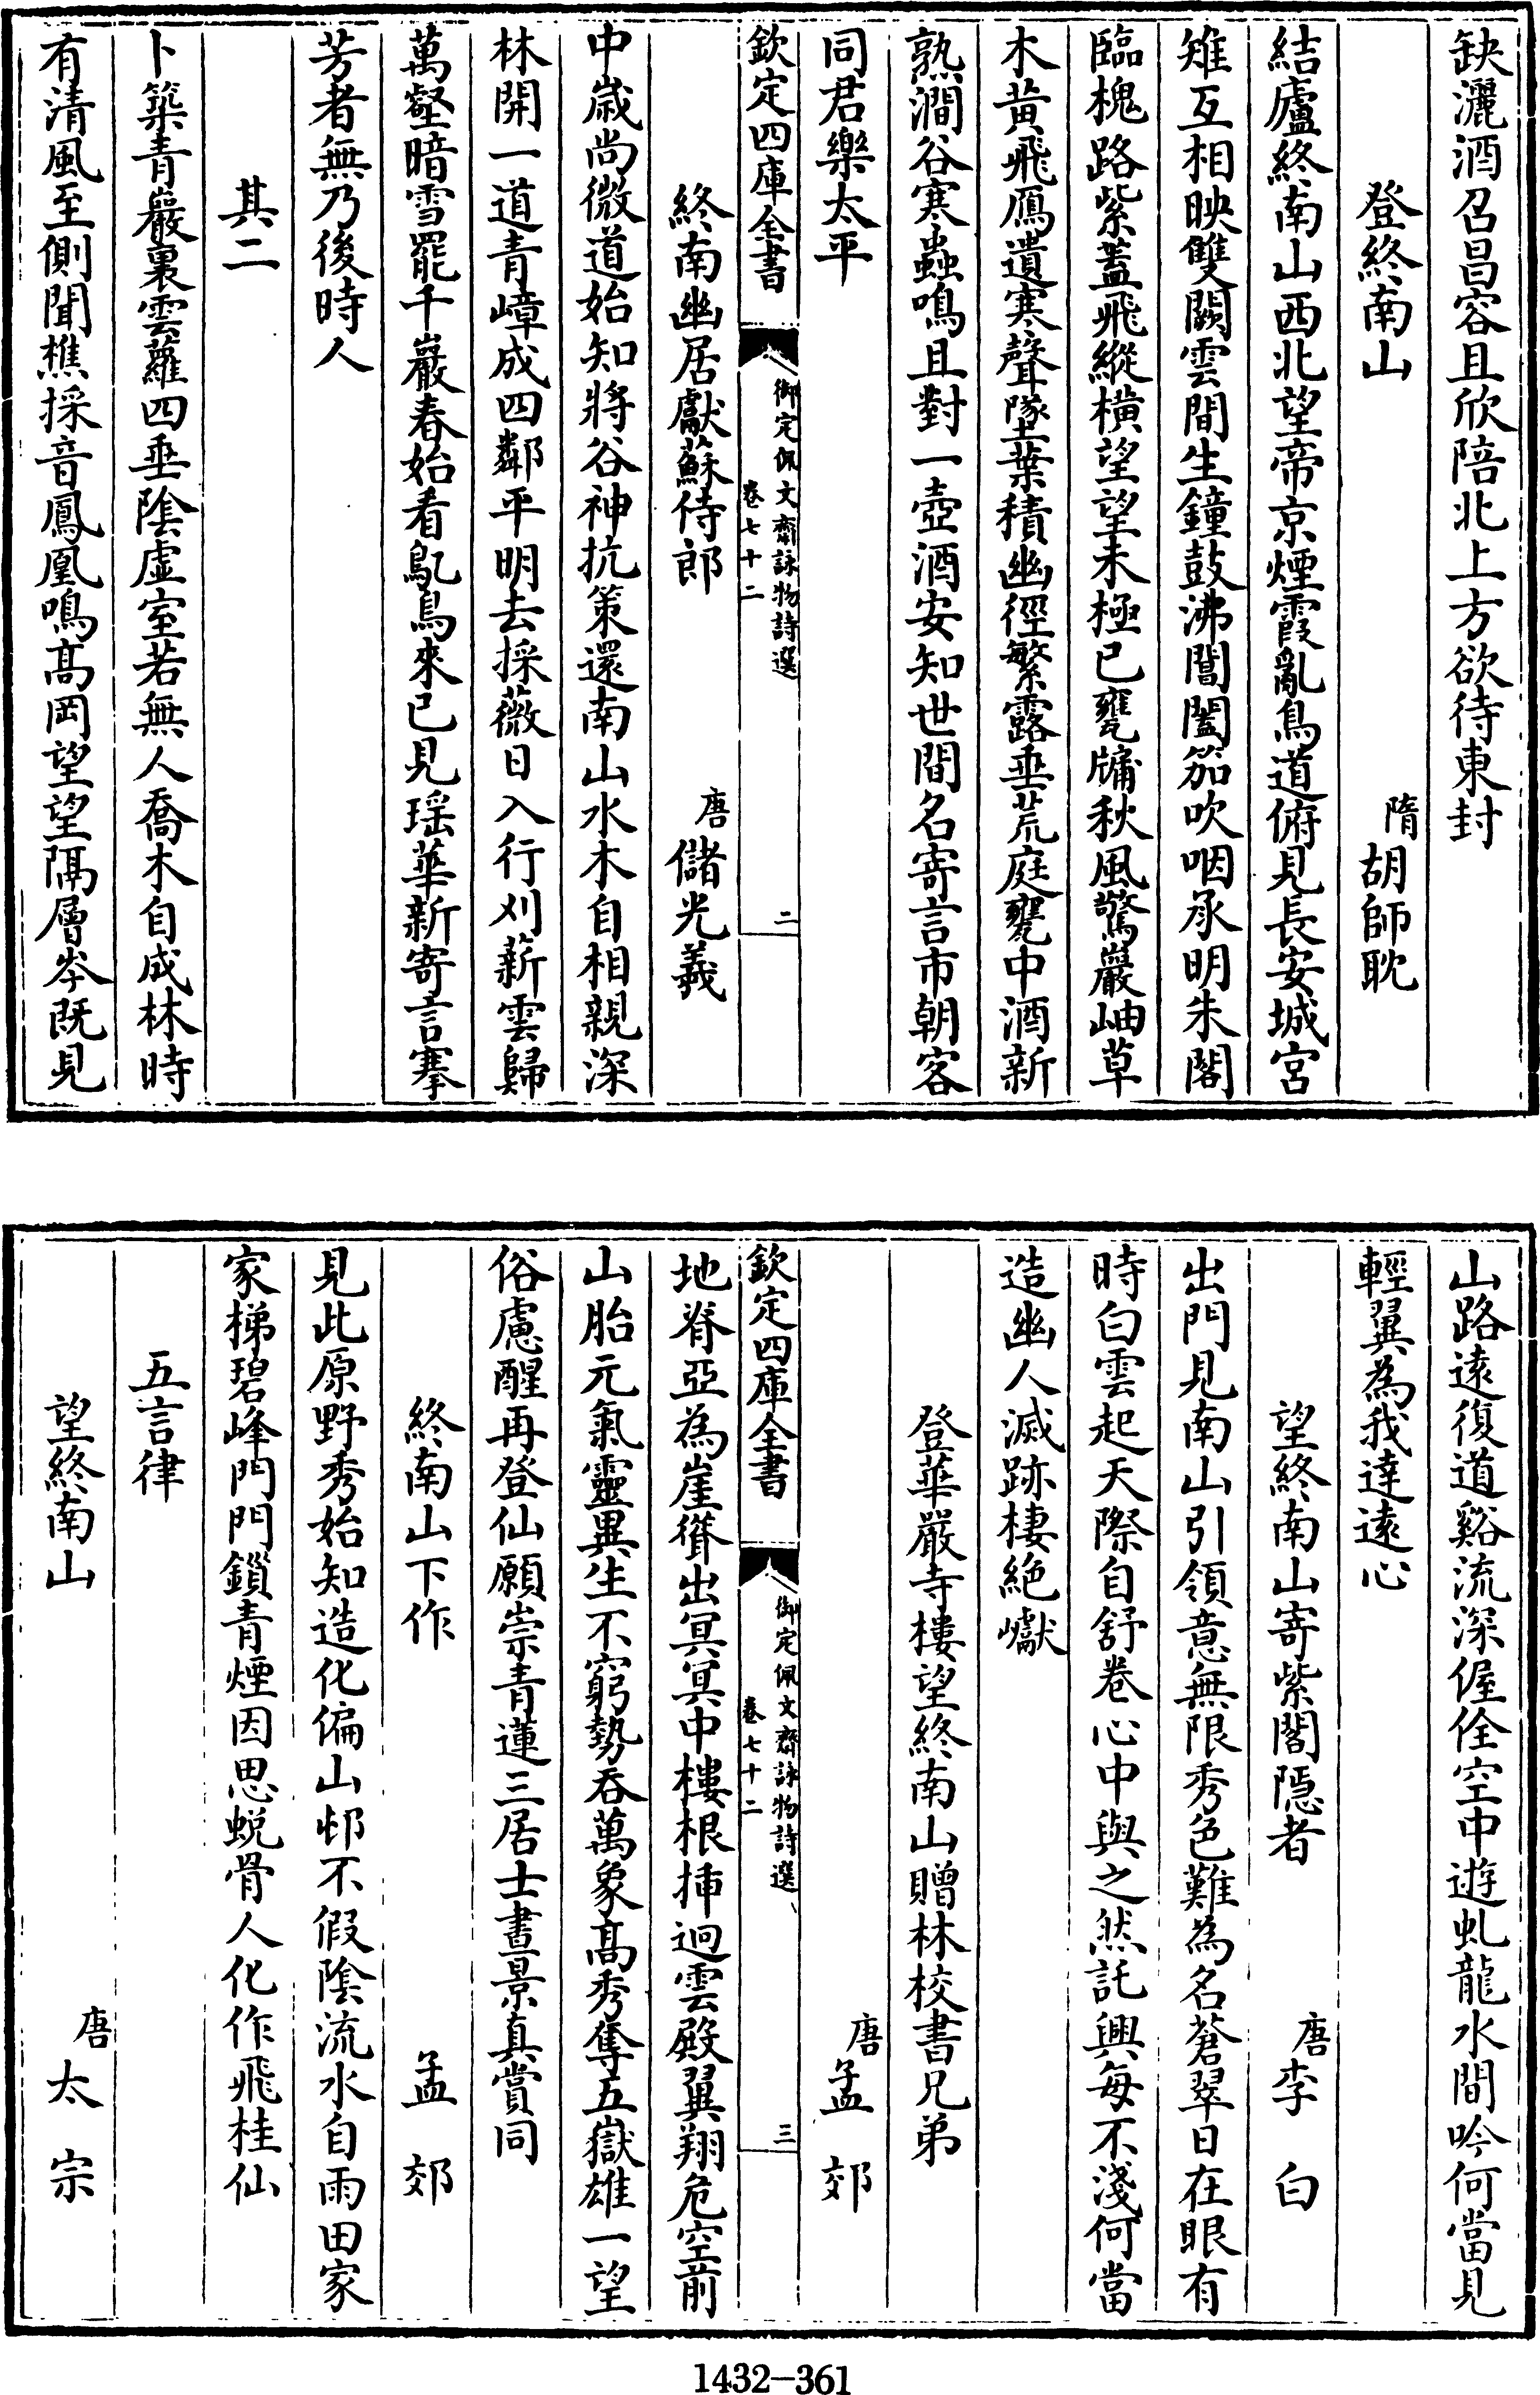 缺灑酒召昌容且欣陪北上方欲待東封
登終南山 隋 胡師耽
結廬終南山西北望帝京煙霞亂鳥道俯見長安城宮
雉互相映雙闕雲間生鐘鼓沸閶闔笳吹咽承明朱閣
臨槐路紫蓋飛縱橫望望未極已甕牖秋風驚巖岫草
木黄飛鴈遺寒聲墜葉積幽徑繁露垂荒庭甕中酒新
熟澗谷寒蟲鳴且對一壺酒安知世間名寄言市朝客
同君樂太平
欽定四庫全書 御定佩文齋詠物詩選 卷七十二 二
終南幽居獻蘇侍郎 唐 儲光羲
中嵗尚微道始知將谷神抗策還南山水木自相親深
林開一道青嶂成四鄰平明去採薇日入行刈薪雲歸
萬壑暗雪罷千巖春始看鳦鳥來已見瑶華新寄言搴
芳者無乃後時人
其二
卜築青巖裏雲蘿四垂陰虛室若無人喬木自成林時
有清風至側聞樵採音鳳凰鳴髙岡望望隔層岑既見
山路逺復道谿流深偓佺空中遊虬龍水間吟何當見
輕翼為我達逺心
望終南山寄紫閣隱者 唐 李白
出門見南山引領意無限秀色難為名蒼翠日在眼有
時白雲起天際自舒卷心中與之然託興每不淺何當
造幽人滅跡棲絶巘
登華嚴寺樓望終南山贈林校書兄弟
唐 孟郊
欽定四庫全書 御定佩文齋詠物詩選 卷七十二 三
地脊亞為崖聳出冥冥中樓根揷迥雲殿翼翔危空前
山胎元氣靈異生不窮勢吞萬象髙秀奪五嶽雄一望
俗慮醒再登仙願崇青蓮三居士晝景真賞同
終南山下作 孟郊
見此原野秀始知造化偏山邨不假陰流水自雨田家
家梯碧峰門門鎖青煙因思蛻骨人化作飛桂仙
五言律
望終南山 唐 太宗
1432-361